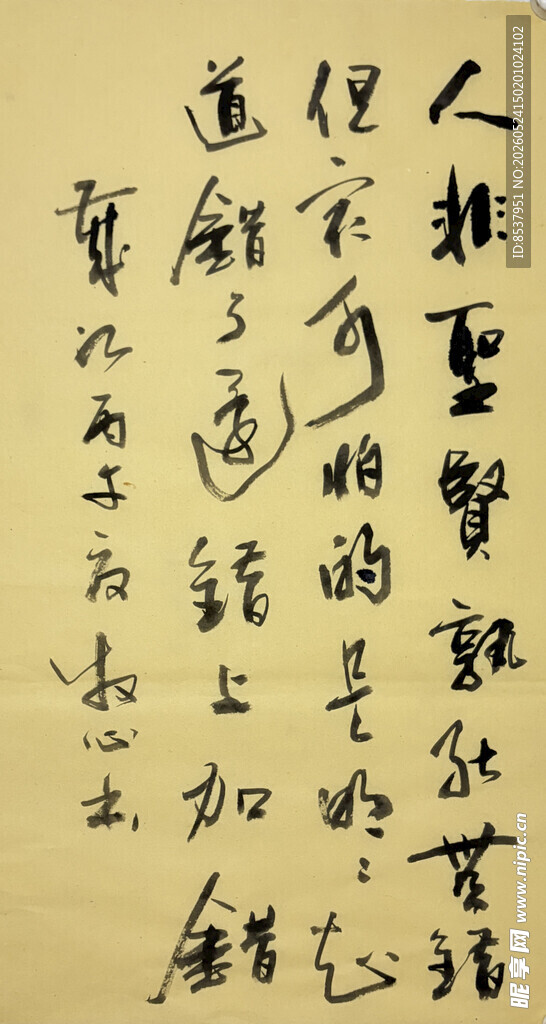 人非聖賢孰能無錯
但最可怕的是明〻知
道錯了還錯上加錯
歲次丙午夏牧心書
ID:8537951 NO:20260524150201024102
昵享网 www.nipic.cn